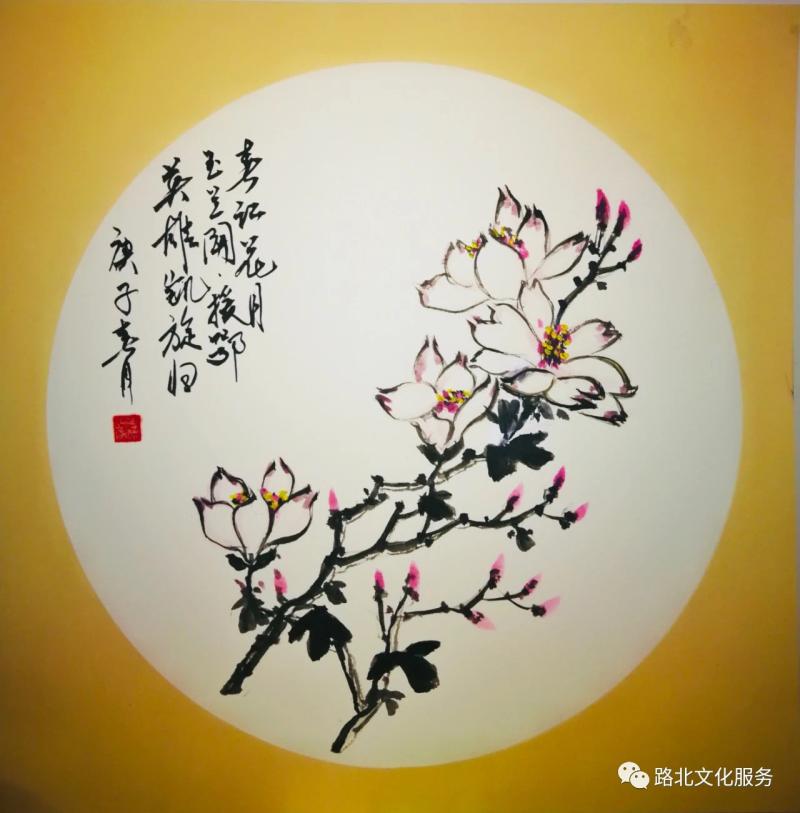 春江花月
玉兰开、援鄂
英雄凯旋归
庚子春月
路北文化服务